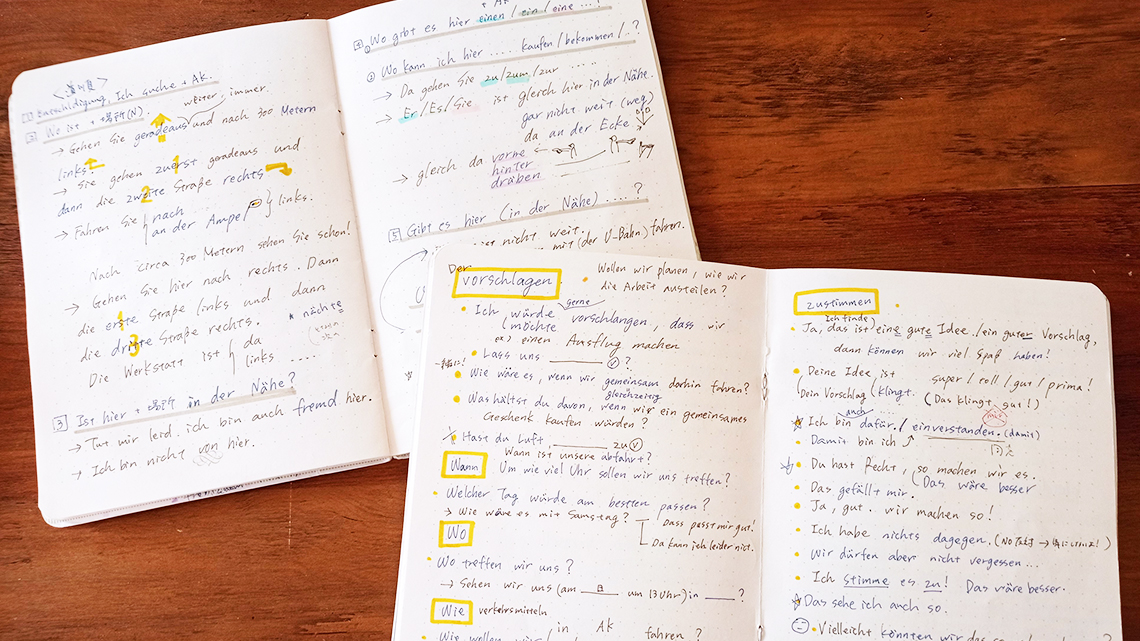 Entschuldigung, Ich suche + Ak.
2 Wo ist + 場所(N).
weiter, immer.
→ Gehen Sie geradeaus und nach 300 Metern
links.
→ Sie gehen zuerst geradeaus und
1
2
dann die zweite Straße rechts
→ Fahren Sie nach ....
an der Ampel links.
Nach circa 300 Metern sehen Sie schon!
→ Gehen Sie hier nach rechts. Dann
die erste Straße links und dann
1
die dritte Straße rechts.
3
* nächste
Die Werkstatt ist da
links ....
3 Ist hier + 場所 in der Nähe?
→ Tut mir leid. ich bin auch fremd hier.
→ Ich bin nicht von hier.
+ Ak
4 ① Wo gibt es hier einen / ein / eine ...?
② Wo kann ich hier .... kaufen / bekommen / ..?
→ Da gehen Sie zu / zum / zur .....
→ Er / Es / Sie ist gleich hier in der Nähe.
gar nicht weit (weg)
da an der Ecke
→ gleich da vorne
hinter
drüben
5 Gibt es hier (in der Nähe) ....?
ist nicht weit.
mit (der U-Bahn) fahren.
Der
vorschlagen
• Wollen wir planen, wie wir
die Arbeit austeilen?
gerne
• Ich würde
möchte vorschlangen, dass wir
ex) einen Ausflug machen
• Lass uns ______ ⓥ ?
• Wie wäre es, wenn wir gemeinsam dorhin fahren?
gleichzeitig
• Was hältst du davon, wenn wir ein gemeinsames
Geschenk kaufen würden?
Hast du Luft, ______ zu ⓥ
Wann ist unsere abfahrt?
Wann Um wie viel Uhr sollen wir uns treffen?
• Welcher Tag würde am besten passen?
→ Wie wäre es mit Samstag?
Dass passt mir gut!
Da kann ich leider nict.
Wo
• Wo treffen wir uns?
→ Sehen wir uns (am ___ um 13 Uhr) in ___ ?
日
Wie verkehrsmitteln
in Ak
Wie wollen wir fahren?
zustimmen
Ich finde
• Ja, das ist eine gute Idee / ein guter Vorschlag,
dann können wir viel Spaß haben!
• Deine Idee ist super / toll / gut / prima!
(Dein Vorschlag klingt. (Das klingt gut!)
auch
☆ Ich bin dafür. / einverstanden. (damit)
Damit bin ich
☆ Du hast Recht, so machen wir es.
(Das wäre besser
• Das gefällt mir.
• Ja, gut. wir machen so!
• Ich habe nichts dagegen.
• Wir dürfen aber nicht vergessen...
• Ich stimme es zu! Das wäre besser.
☆ Das sehe ich auch so.
• Vielleicht könnten wir das so